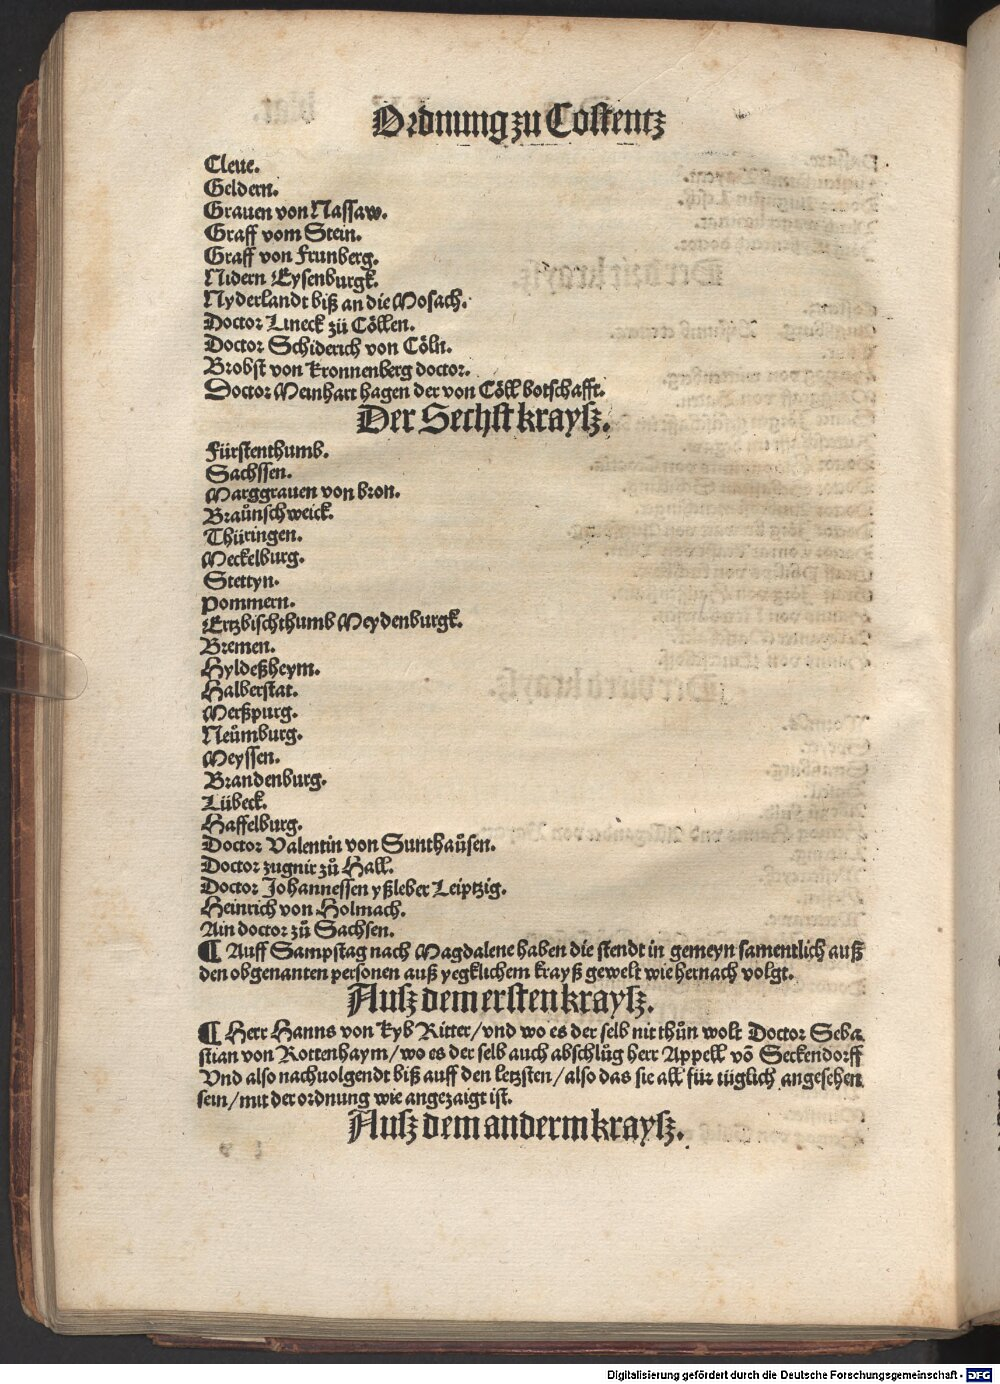 Ordnung zu Costentz
Cleue.
Geldern.
Grauen von Nassaw.
Graff vom Stein.
Graff von Frunberg.
Nidern Eysenburgk.
Nyderlandt biß an die Mosach.
Doctor Lineck zü Cöllen.
Doctor Schiderich von Cöln.
Brobst von Kronnenberg doctor.
Doctor Meinhart hagen der von Cöll botschafft.
Der Sechst kraysz.
Fürstenthumb.
Sachssen.
Marggrauen von bron.
Braůnschweick.
Thüringen.
Meckelburg.
Stettyn.
Pommern.
Ertzbischthumb Meydenburgk.
Bremen.
Hyldeßheym.
Halberstat.
Merßpurg.
Neůmburg.
Meyssen.
Brandenburg.
Lübeck.
Haffelburg.
Doctor Valentin von Sunthaůsen.
Doctor zugnir zů Hall.
Doctor Johannessen yßleber Leiptzig.
Heinrich von Holmach.
Ain doctor zů Sachsen.
¶ Auff Sampstag nach Magdalene haben die stendt in gemeyn samentlich auß
den obgenanten personen auß yegklichem krayß gewelt wie hernach volgt.
Ausz dem ersten kraysz.
¶ Herr Hanns von Kyb Ritter/vnd wo es der selb nit thůn wolt Doctor Seba-
stian von Rottenhaym/wo es der selb auch abschlůg herr Appell võ Seckendorff
Vnd also nachuolgendt biß auff den letzsten/also das sie all für tüglich angesehen
sein/mit der ordnung wie angezaigt ist.
Ausz dem anderm kraysz.
Digitalisierung gefördert durch die Deutsche Forschungsgemeinschaft - DFG